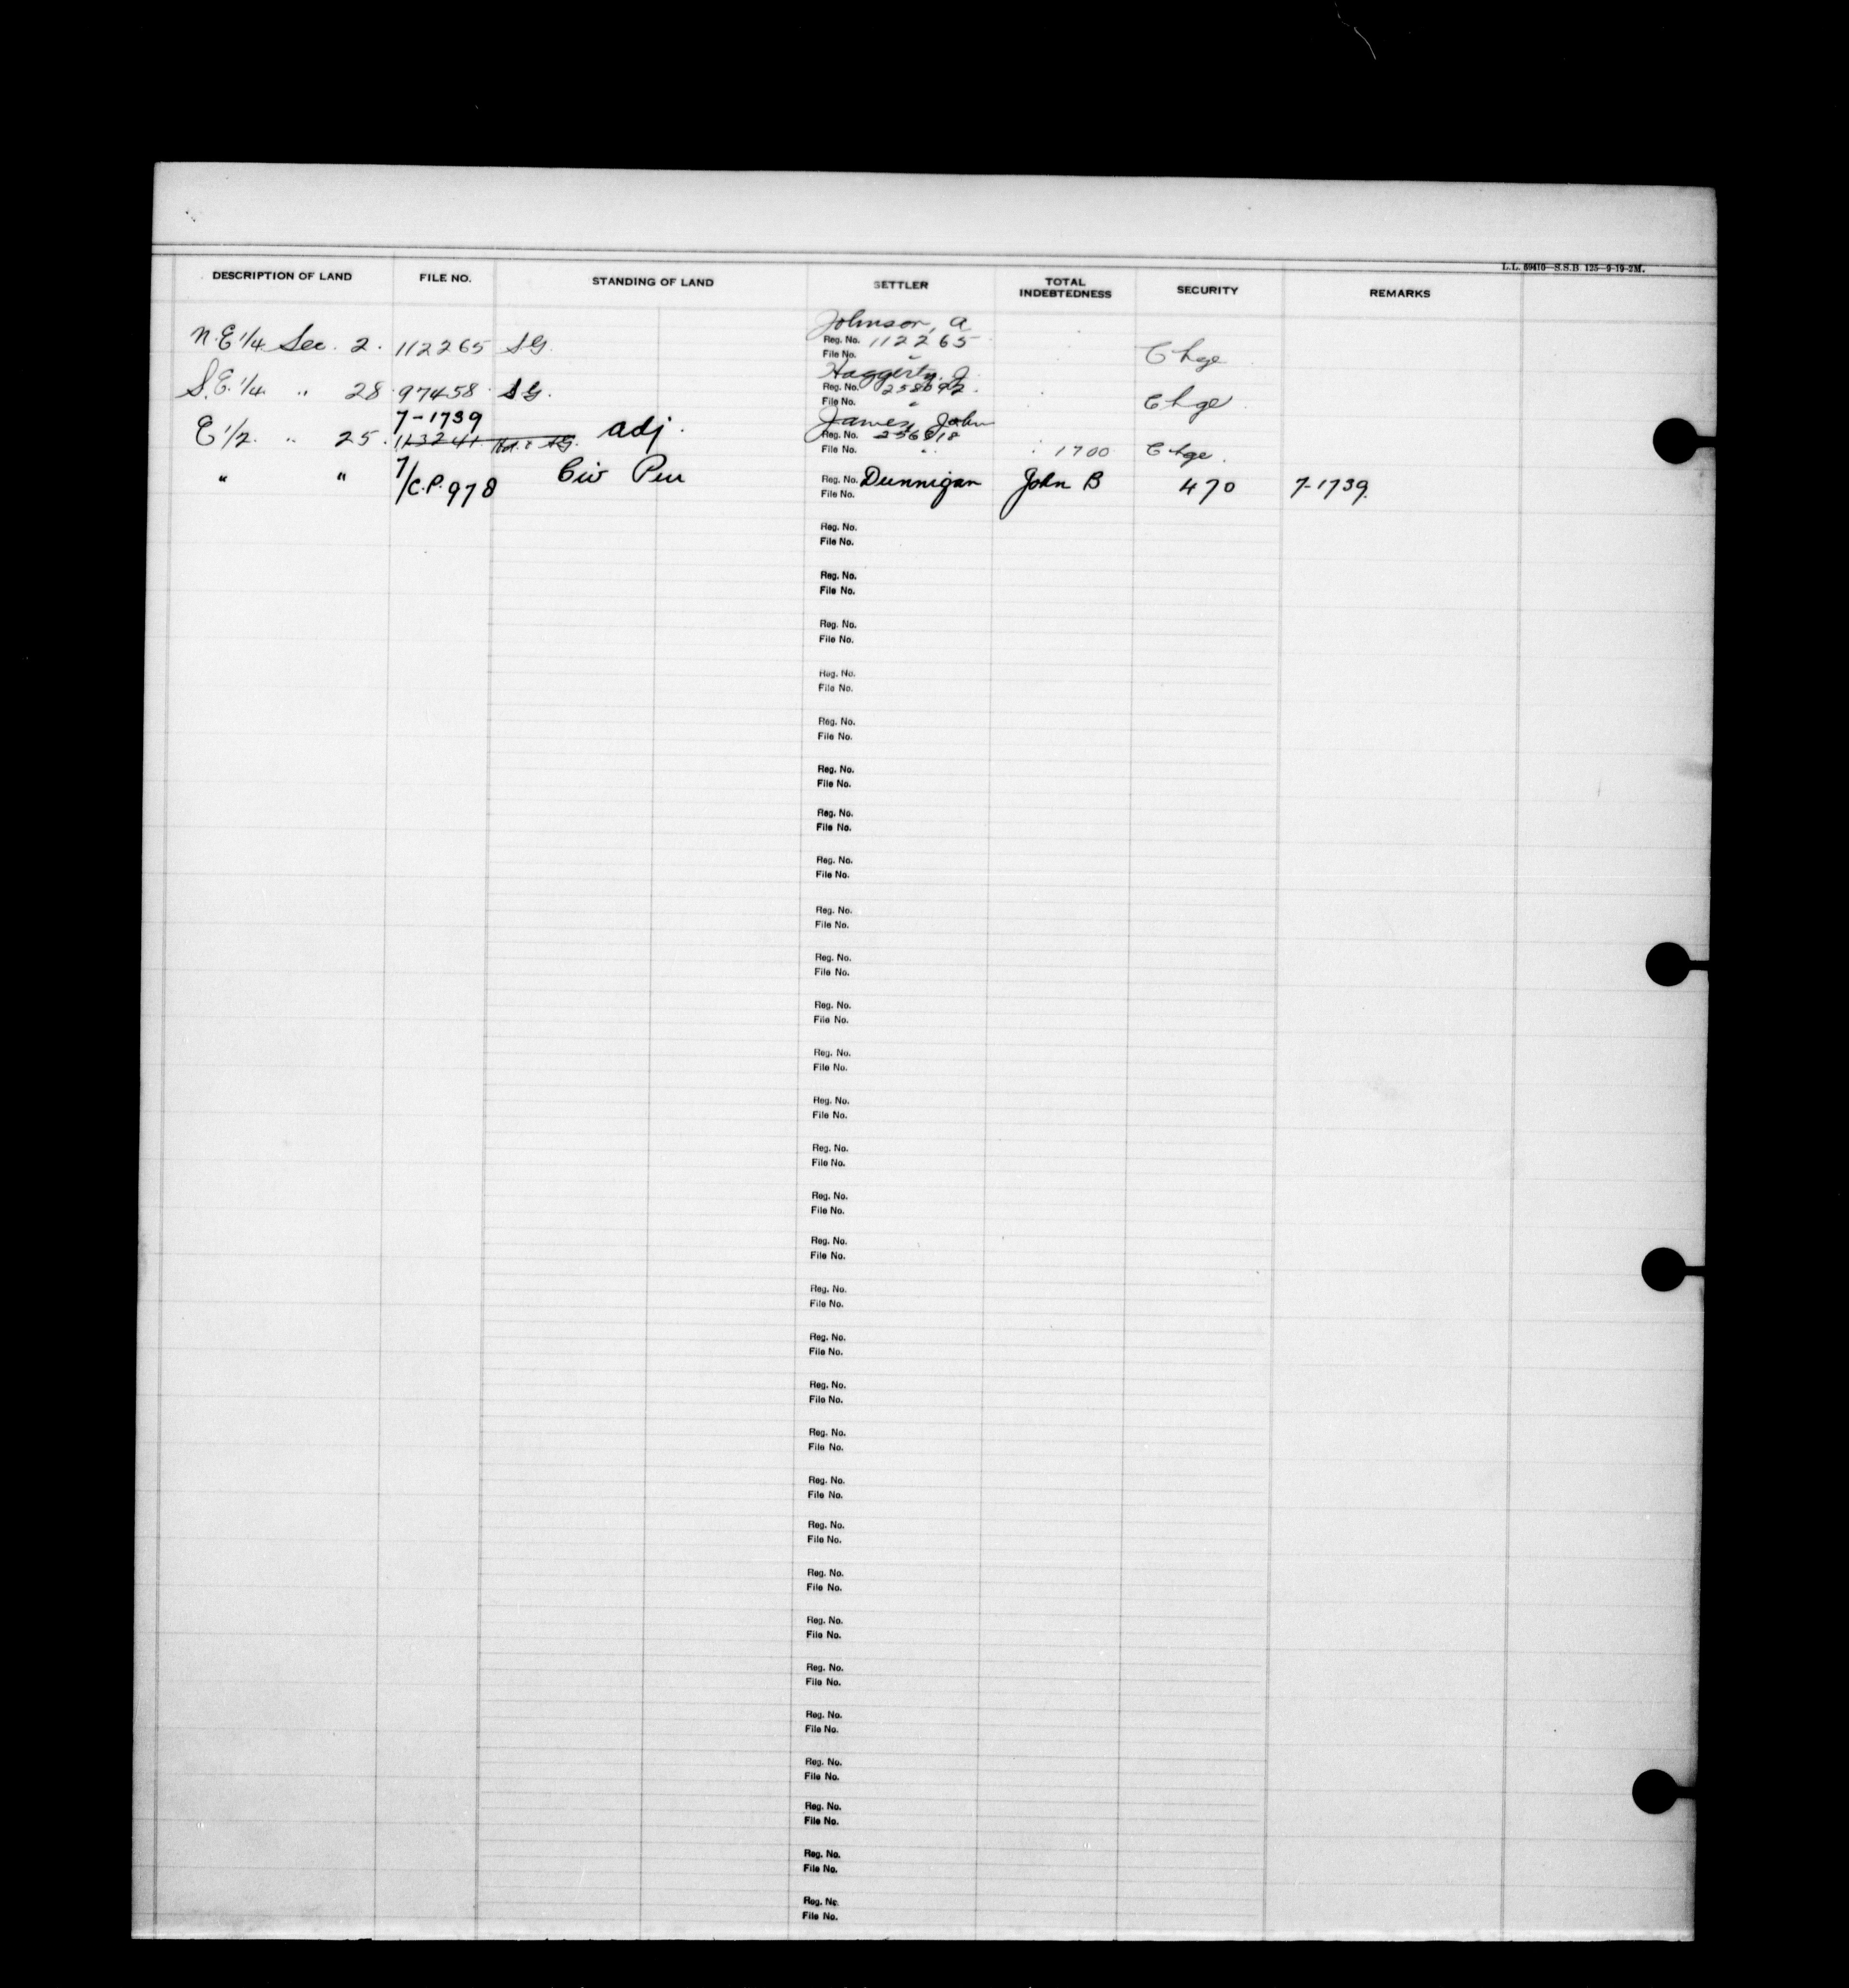 L.L. 69410—S.S.B. 125—9-19-2M.
DESCRIPTION OF LAND FILE NO. STANDING OF LAND SETTLER TOTAL INDEBTEDNESS SECURITY REMARKS
Johnson, A
N.E 1/4 Sec. 2. 112265 S.G. Reg. No. 112265 Chge
File No. "
Haggerty, J.
S.E. 1/4 " 28. 97458 S.G. Reg. No. Chge
File No. "
7-1739 James, John
E 1/2 " 25. 113241 adj. Reg. No.
File No. " 1700 Chge.
" " 7/C.P. 978 Civ Pur Reg. No. Dunnigan John B 470 7-1739
File No.
Reg. No.
File No.
Reg. No.
File No.
Reg. No.
File No.
Reg. No.
File No.
Reg. No.
File No.
Reg. No.
File No.
Reg. No.
File No.
Reg. No.
File No.
Reg. No.
File No.
Reg. No.
File No.
Reg. No.
File No.
Reg. No.
File No.
Reg. No.
File No.
Reg. No.
File No.
Reg. No.
File No.
Reg. No.
File No.
Reg. No.
File No.
Reg. No.
File No.
Reg. No.
File No.
Reg. No.
File No.
Reg. No.
File No.
Reg. No.
File No.
Reg. No.
File No.
Reg. No.
File No.
Reg. No.
File No.
Reg. No.
File No.
Reg. No.
File No.
Reg. No.
File No.
Reg. No.
File No.
Reg. No.
File No.